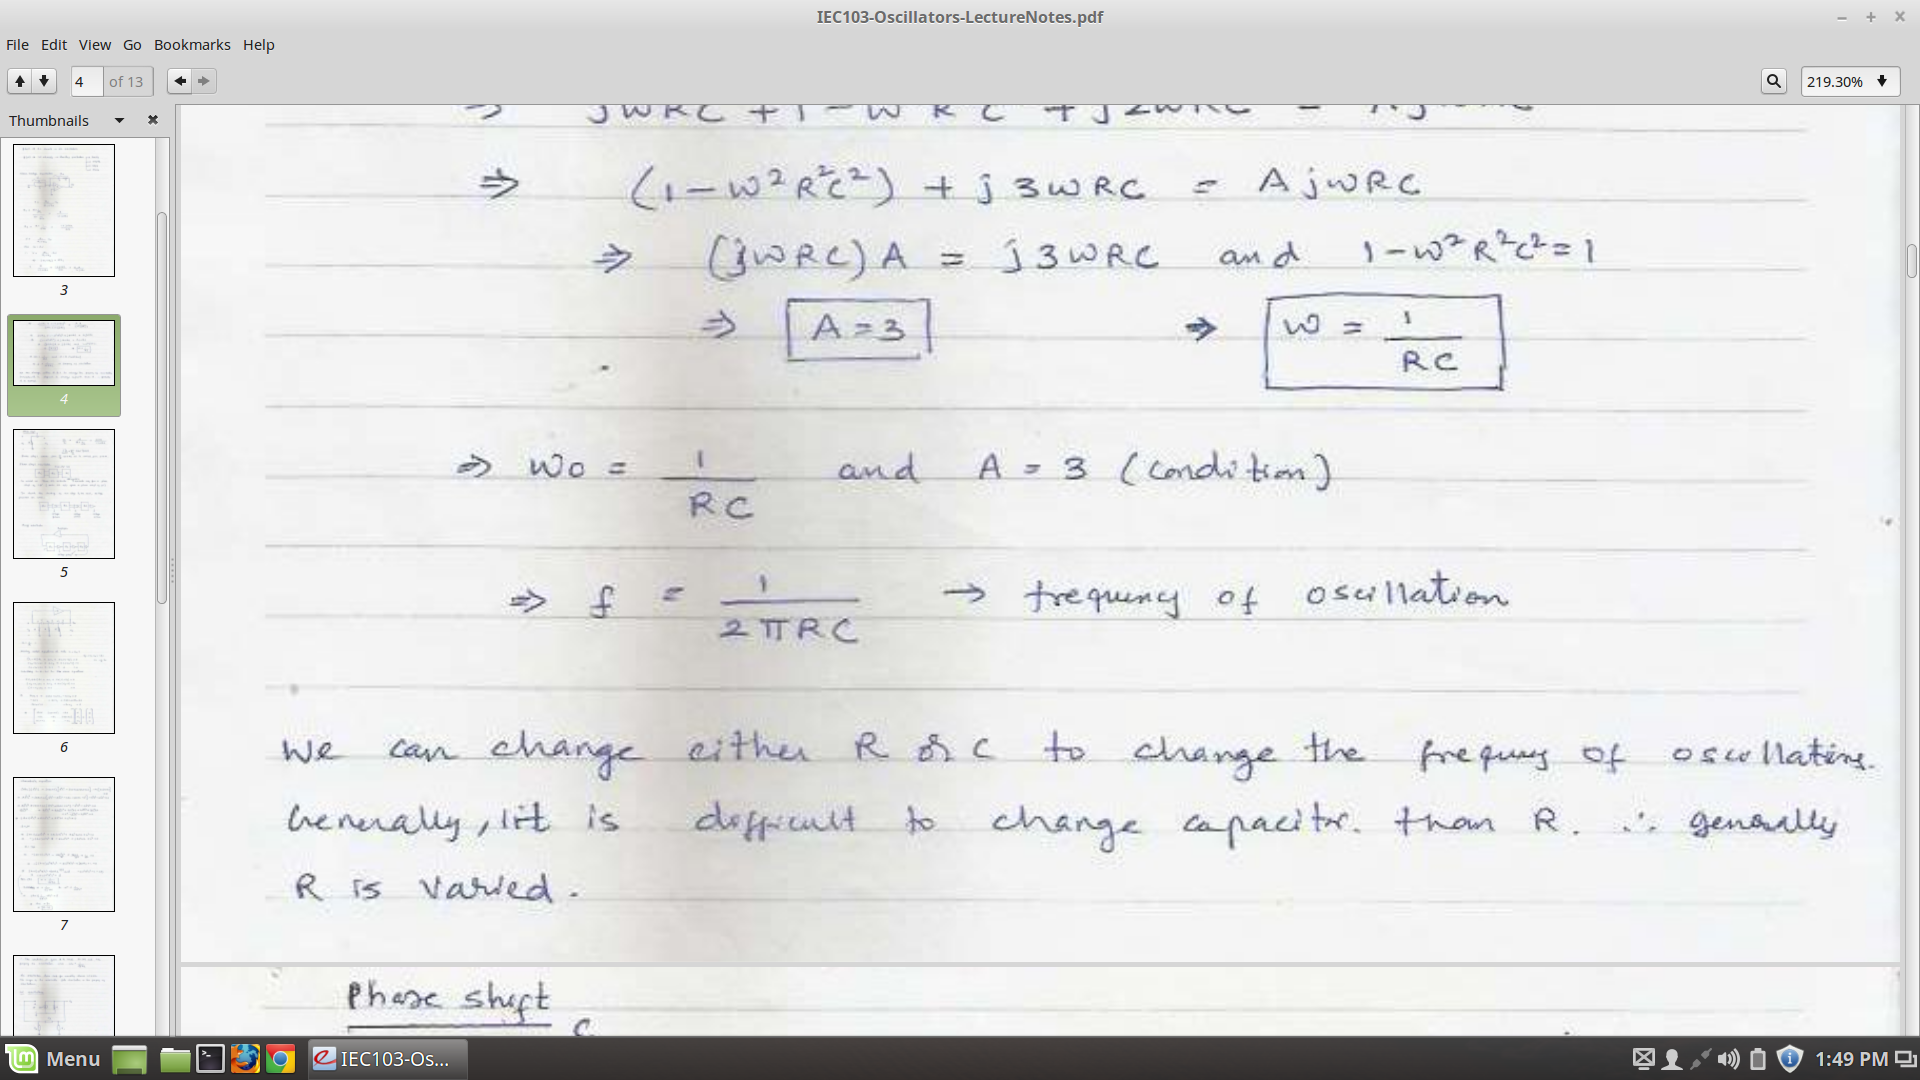 IEC103-Oscillators-LectureNotes.pdf
File Edit View Go Bookmarks Help
4 of 13
219.30%
Thumbnails
3
4
5
6
7
⇒ jwRC + 1 - w R C + j2wRC =
⇒ (1-w²R²C²) + j3wRC = AjwRC
⇒ (jwRC)A = j3wRC and 1-w²R²C²=1
⇒ A=3 ⇒ w = 1/RC
⇒ wo = 1/RC and A = 3 (condition)
⇒ f = 1/2πRC → frequency of oscillation
We can change either R or C to change the frequency of oscillations.
Generally, it is difficult to change capacitor. than R. ∴ generally
R is varied.
Phase shift
C
Menu
IEC103-Os...
1:49 PM